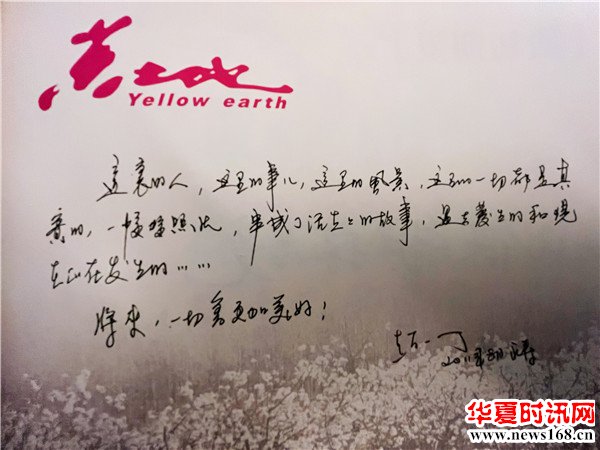 黄土地
Yellow earth
这里的人，这里的事儿，这里的风景，这里的一切都是真
实的，一幢幢照片，串成了活生生的故事，过去发生的和现
在正在发生的……
将来，一切会更加美好！
赵一丁
华夏时讯网
www.news168.cn